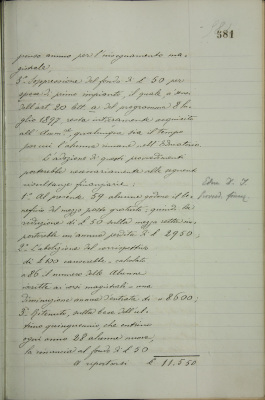 581
penso annuo per l'insegnamento ma-
gistrale;
3.° Soppressione del fondo di £ 50 per
spesa di primo impianto, il quale, a sensi
dell'art. 20 lett. a del programma 8 lu-
glio 1897, resta interamente acquisito
all'Amm.ne qualunque sia il tempo
per cui l'alunna rimane nell'Educatorio.
L'adozione di questi provvedimenti
porterebbe necessariamente alle seguenti
risultanze finanziarie:
1.° Al presente 59 alunne godono il be-
neficio del mezzo posto gratuito; quindi la
riduzione di £ 50 sulla mezza retta im-
porterebbe un'annua perdita di £ 2950;
2.° L'abolizione del corrispettivo
di £ 100 cancellate, calcolato
a 86 il numero delle Alunne
iscritte ai corsi magistrali, a una
diminuzione annua d'entrata di " 8600;
3.° Ritenuto, sulla base dell'ul-
timo quinquennio che entrino
ogni anno 28 alunne nuove,
la rinuncia al fondo di £ 50
A riportarsi £ 11.550